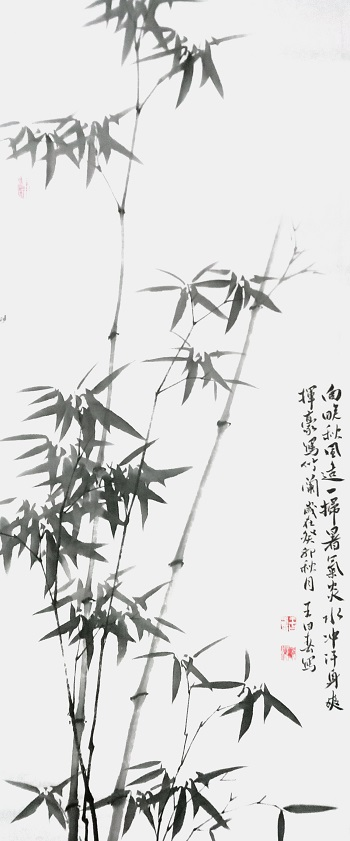 向晚秋風造一掃暑氣炎水冲汗身爽
揮豪寫竹蘭歲在癸卯秋月王田春寫